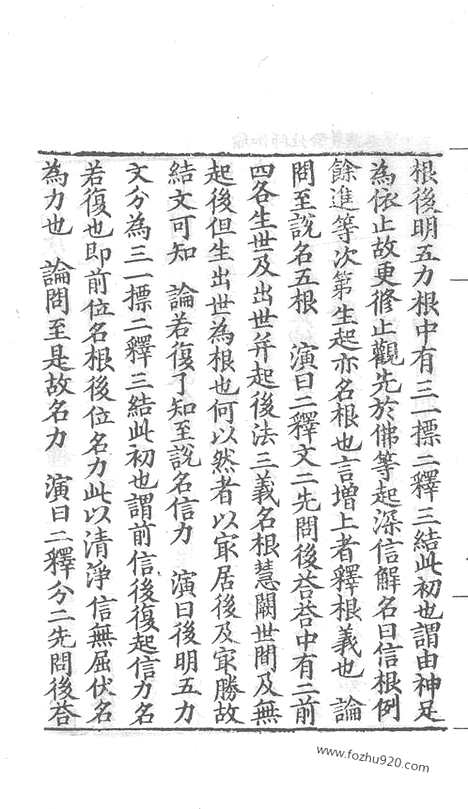 根後明五力根中有三一標二釋三結此初也謂由神足
為依止故更修止觀先於佛等起深信解名曰信根例
餘進等次第生起亦名根也言增上者釋根義也　論
問至說名五根　演曰二釋文二先問後荅荅中有二前
四各生世及出世并起後法三義名根慧闕世間及無
起後但生出世為根也何以然者以㝡居後及㝡勝故
結文可知　論若復了知至說名信力　演曰後明五力
文分為三一標二釋三結此初也謂前信後復起信力名
若復也即前位名根後位名力此以清淨信無屈伏名
為力也　論問至是故名力　演曰二釋分二先問後荅
www.fozhu920.com